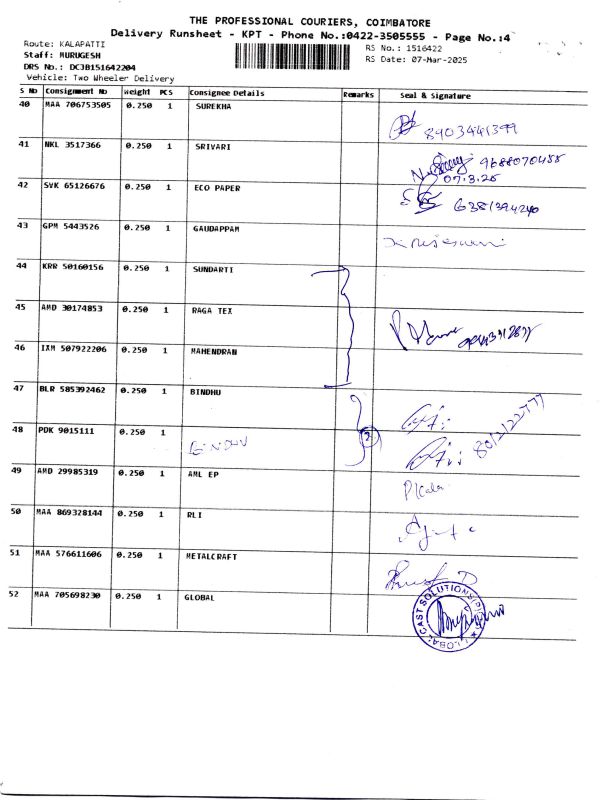 THE PROFESSIONAL COURIERS, COIMBATORE
Delivery Runsheet - KPT - Phone No.:0422-3505555 - Page No.:4
Route: KALAPATTI
RS No.: 1516422
Staff: MURUGESH
RS Date: 07-Mar-2025
DRS No.: DC3B151642204
Vehicle: Two Wheeler Delivery
S No Consignment No Weight PCS Consignee Details Remarks Seal & Signature
40 MAA 706753505 0.250 1 SUREKHA
8903441399
41 NKL 3517366 0.250 1 SRIVARI
9688070488
07.3.25
42 SVK 65126676 0.250 1 ECO PAPER
6381394240
43 GPM 5443526 0.250 1 GAUDAPPAM
44 KRR 50160156 0.250 1 SUNDARTI
45 AMD 30174853 0.250 1 RAGA TEX
46 IXM 507922206 0.250 1 MAHENDRAN
47 BLR 585392462 0.250 1 BINDHU
48 PDK 9015111 0.250 1 BINDHU
2
49 AMD 29985319 0.250 1 AML EP
PKala
50 MAA 869328144 0.250 1 RLI
51 MAA 576611606 0.250 1 METALCRAFT
52 MAA 705698230 0.250 1 GLOBAL